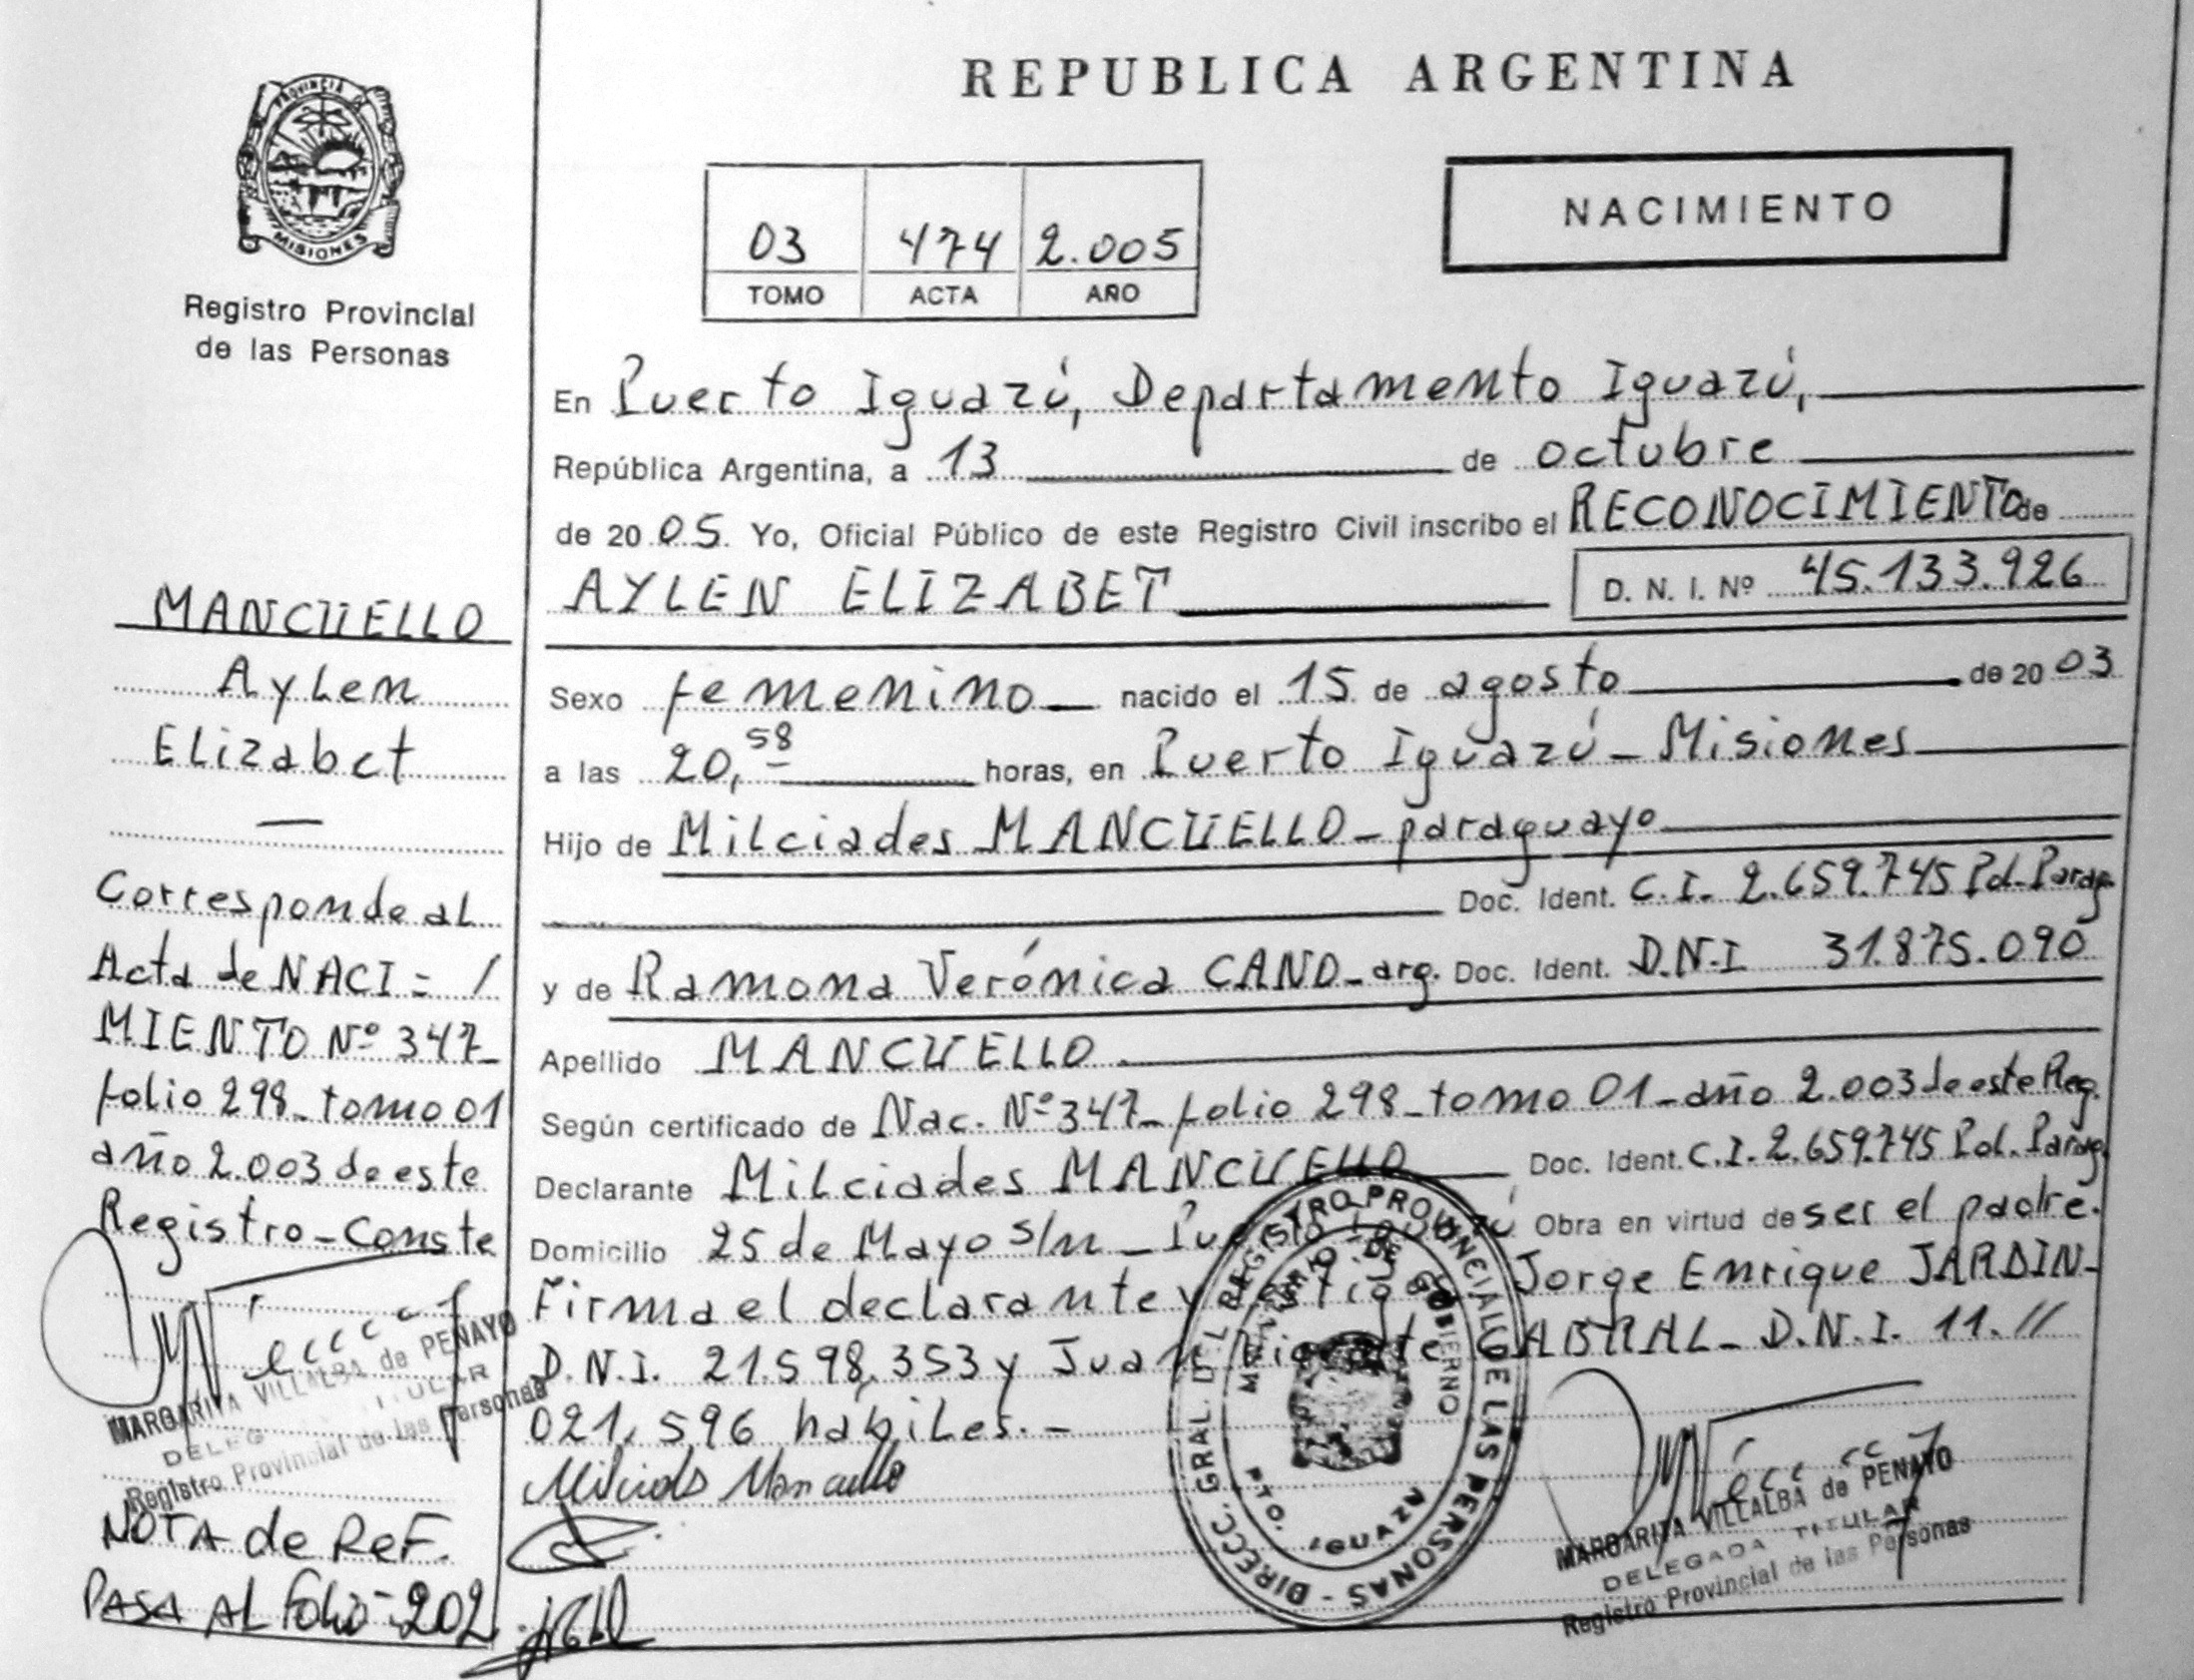 REPUBLICA ARGENTINA
PROVINCIA DE
MISIONES
Registro Provincial
de las Personas
03 474 2.005
TOMO ACTA AÑO
NACIMIENTO
En Puerto Iguazú, Departamento Iguazú,
República Argentina, a 13 de octubre
de 20 05. Yo, Oficial Público de este Registro Civil inscribo el RECONOCIMIENTO de
AYLEN ELIZABET D. N. I. Nº 45.133.926
Sexo femenino nacido el 15 de agosto de 20 03
a las 20,58 horas, en Puerto Iguazú - Misiones
Hijo de Milciades MANCÜELLO - paraguayo
Doc. Ident. C.I. 2.659.745 Pol. Parag.
y de Ramona Verónica CANO - arg. Doc. Ident. D.N.I 31.875.090
Apellido MANCÜELLO
Según certificado de Nac. Nº 347 - folio 298 - tomo 01 - año 2.003 de este Reg.
Declarante Milciades MANCÜELLO Doc. Ident. C.I. 2.659.745 Pol. Parag.
Domicilio 25 de Mayo s/n - Puerto Iguazú Obra en virtud de ser el padre.
Firma el declarante y Jorge Enrique JARDIN -
D.N.I. 21.598.353 y Juan CABRAL - D.N.I. 11.//
021.596 habiles.-
Milciades Mancuello
MANCÜELLO
Aylen
Elizabet
—
Corresponde al
Acta de NACI = /
MIENTO Nº 347 -
folio 298 - tomo 01
año 2.003 de este
Registro - Conste
MARGARITA VILLALBA de PENAYO
TITULAR
Registro Provincial de las Personas
NOTA de REF.
PASA AL Folio - 202
DIRECC. GRAL. DEL REGISTRO PROVINCIAL DE LAS PERSONAS -
MINISTERIO DE GOBIERNO
PTO. IGUAZU
MARGARITA VILLALBA de PENAYO
DELEGADA TITULAR
Registro Provincial de las Personas